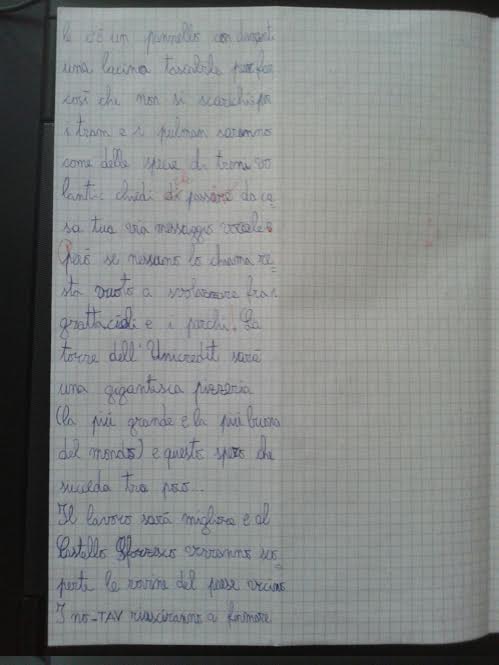 c'è un pannello con davanti
una lucina tascabile per far
così che non si scarichi poi
i tram e i pulman saranno
come delle specie di treni vo
lanti: chiedi di passare da ca
sa tua via messaggio vocale
Però se nessuno lo chiama re
sta vuoto a svolazzare fra i
grattacieli e i parchi. La
torre dell'Unicredit sará
una gigantesca pizzeria
(la piú grande e la piú buona
del mondo) e questo spero che
succeda tra poco...
Il lavoro sará migliore e al
Castello Sforzesco verranno sco
perte le rovine del paese vicino
I no-TAV riusciranno a fermare